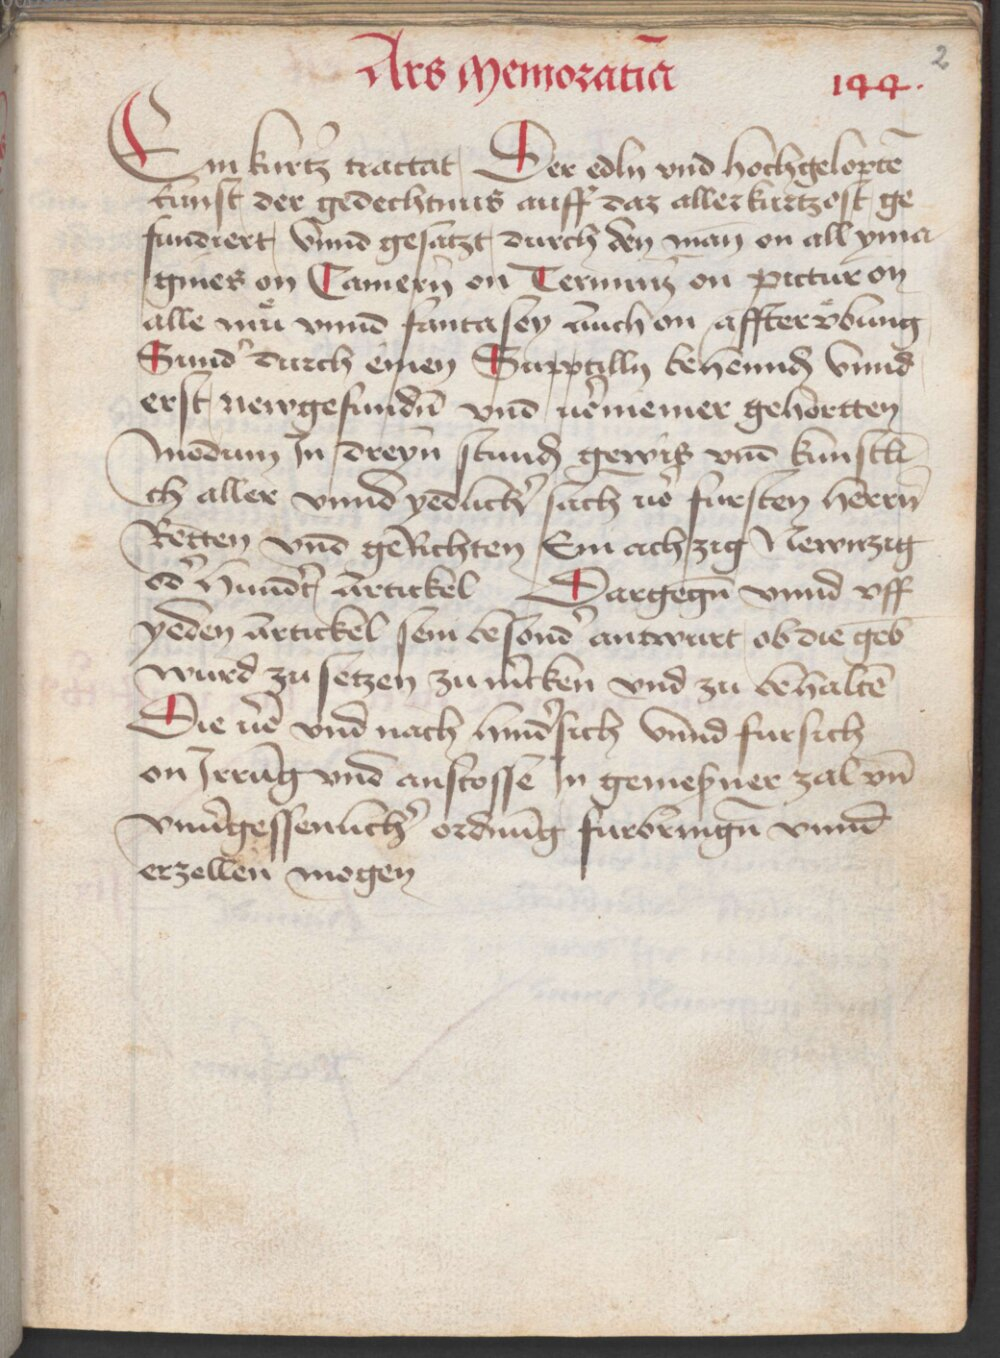 Ars Memoratiā
2
144.
Ein kurtz tractat Der edln vnd hochgelortē
kunst der gedechtnus auff daz allerkurtzost ge
fundiert Vnnd gesatzt durch den man on all yma
gines on Camern on Terminj on pictur on
alle mů vnnd fantasey Auch on affterŏbung
Sund' durch einen Supptilln behennd Vnnd
erst newgefundn̄ vnd niemer gehortten
Modum In dreyn stund gewis vnd kunstli
ch aller vnnd yedlich' sach vor fursten herrn
Retten vnd gerichten Ein achzig Newnzig
od' hund't Artickel Dargegn̄ vnnd vff
yeden Artickel sein besond' antwurt ob die geb
wurd zu setzen zu mercken vnd zu behaltē
Die vor vnd nach hind'sich Vnnd fursich
on Irrūg vnd anstosse In gemesner zal vn̄
vnu'gessenlich' ordnūg furbringn̄ vnnd
erzellen mogen